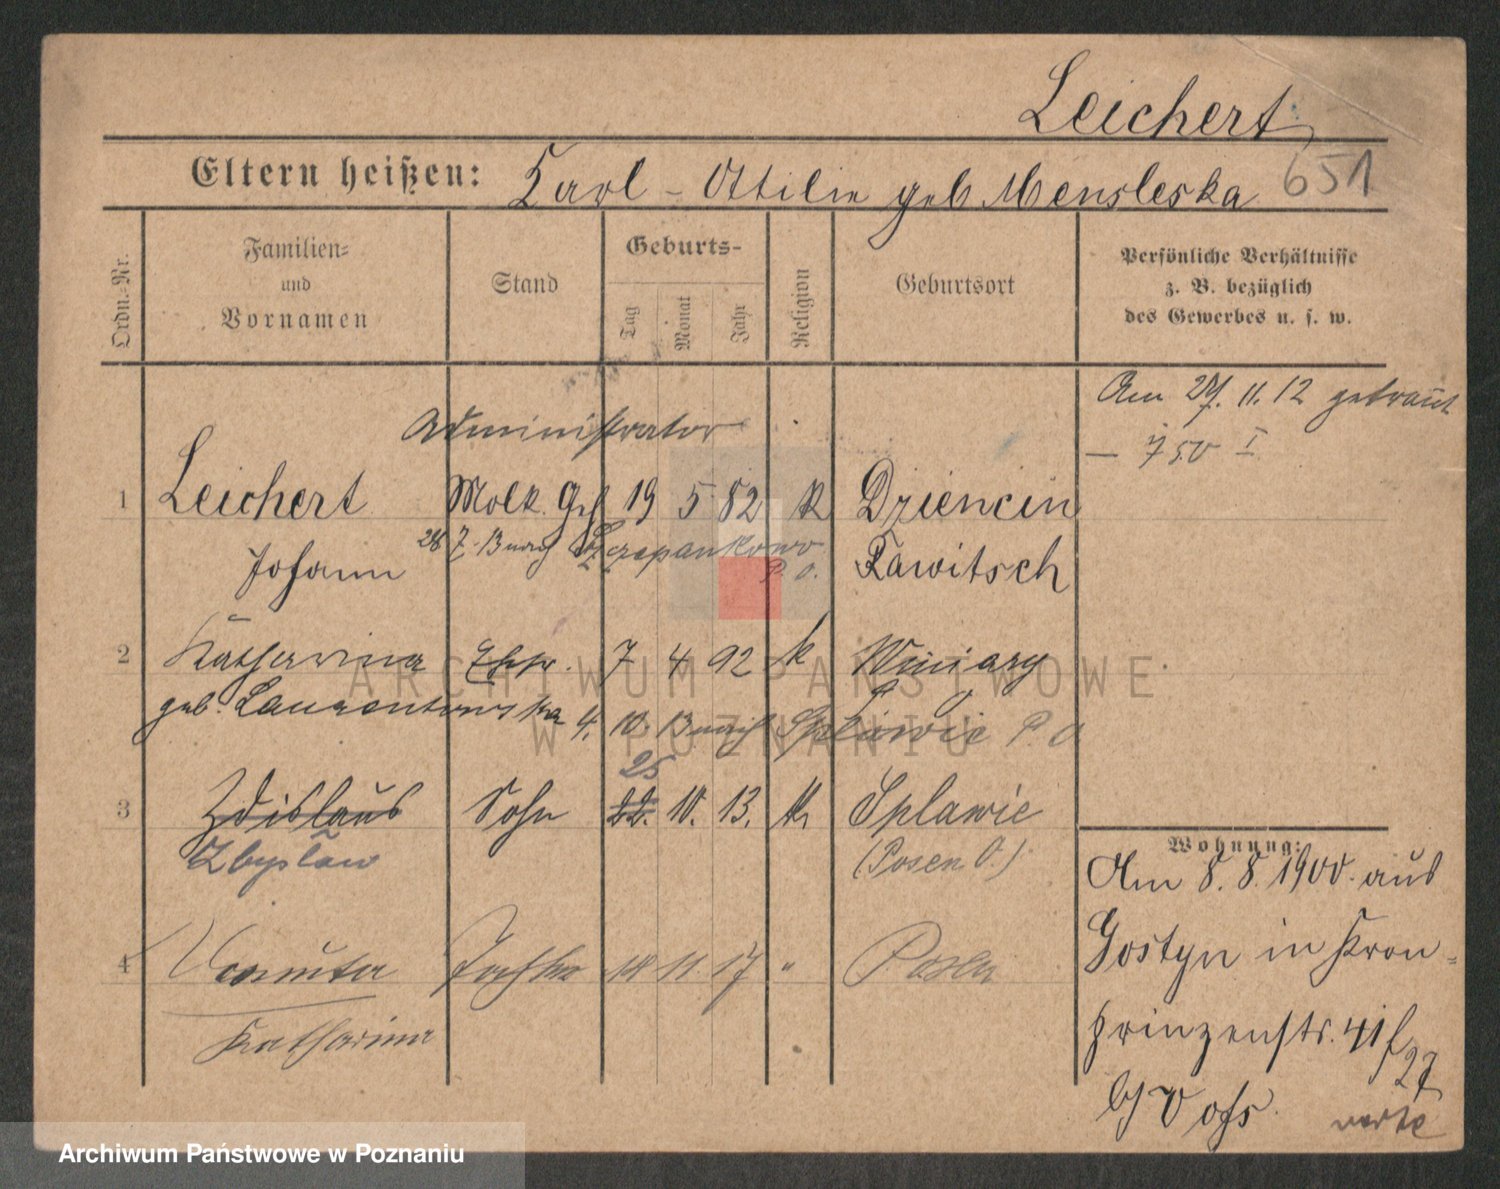 Leichert
651
Eltern heißen: Karl - Ottilie geb Mensleska
Ordn.-Nr.
Familien-
und
Vornamen
Stand
Geburts-
Tag
Monat
Jahr
Religion
Geburtsort
Persönliche Verhältnisse
z. B. bezüglich
des Gewerbes u. s. w.
Am 27. 11. 12 getraut
— 750 I
Administrator
1 Leichert Molk. Geh 19 5 82 K Dziencin
28 7. 13 nach Szczepankowo
P. O.
Johann Rawitsch
2 Katharina Ehefr. 7 4 92 k Winiary
geb. Laurentowska 4. 10. 13 nach Splawie P. O
25
3 Zdislaus Sohn 22. 10. 13. k Splawie
Zbyslaw (Posen O.)
4 Danuta Tochter 14 11 17 " Posen
Katharina
Wohnung:
Am 8. 8. 1900. aus
Gostyn in Kron-
prinzenstr. 41 f
27
b/ Voss
verte
ARCHIWUM PAŃSTWOWE
W POZNANIU
Archiwum Państwowe w Poznaniu